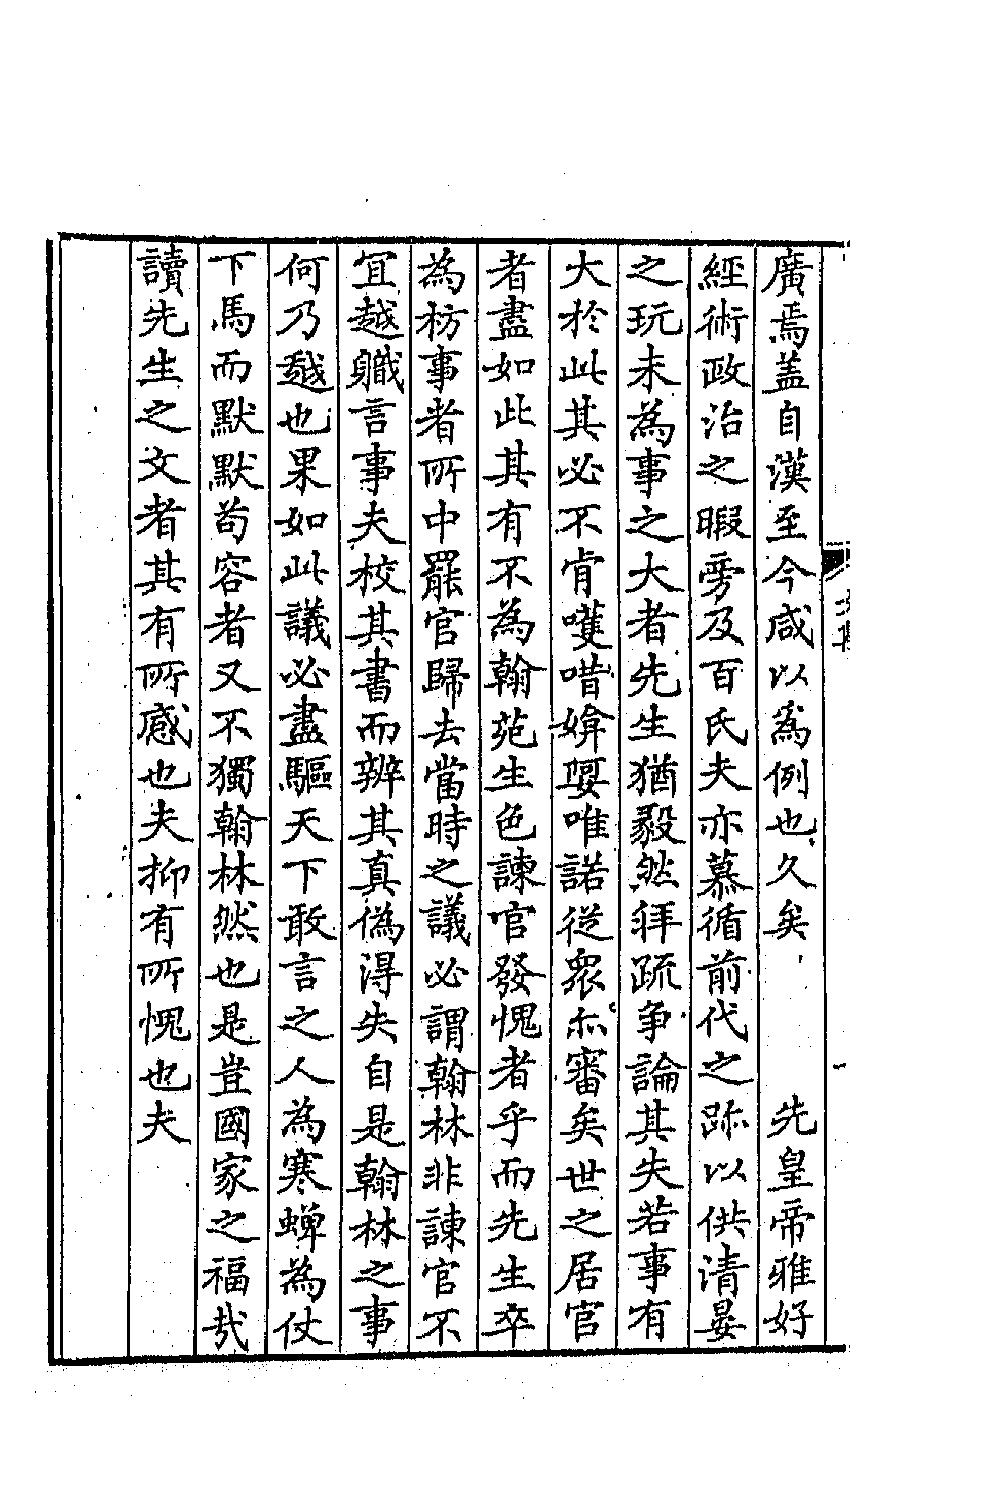 廣焉盖自漢至今咸以爲例也久矣　　先皇帝雅好
經術政治之暇旁及百氏夫亦慕循前代之跡以供清晏
之玩未為事之大者先生猶毅然拜疏争論其失若事有
大於此其必不肯嚄唶媕娿唯諾從衆亦審矣世之居官
者盡如此其有不為翰苑生色諫官發愧者乎而先生卒
為枋事者所中罷官歸去當時之議必謂翰林非諫官不
宜越職言事夫校其書而辨其真偽得失自是翰林之事
何乃越也果如此議必盡驅天下敢言之人為寒蟬為仗
下馬而默默苟容者又不獨翰林然也是豈國家之福哉
讀先生之文者其有所感也夫抑有所愧也夫